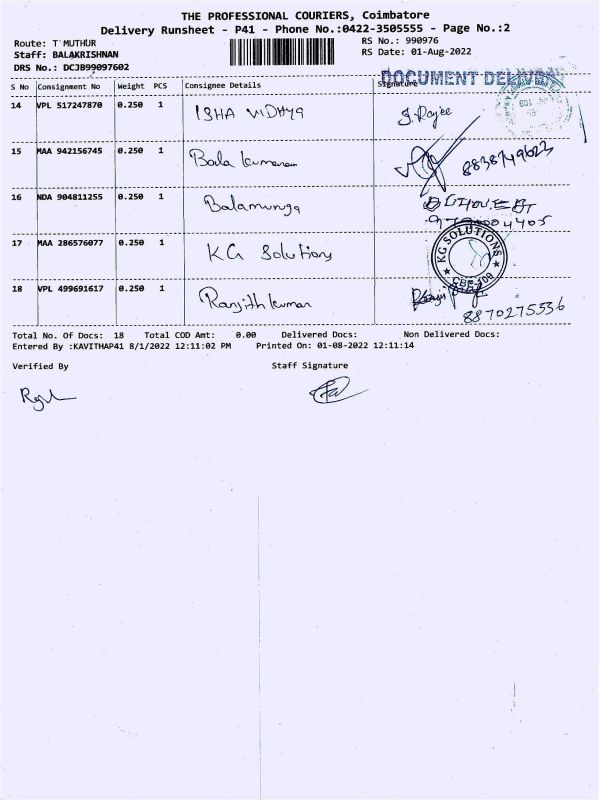 THE PROFESSIONAL COURIERS, Coimbatore
Delivery Runsheet - P41 - Phone No.:0422-3505555 - Page No.:2
Route: T MUTHUR
RS No.: 990976
Staff: BALAKRISHNAN
RS Date: 01-Aug-2022
DRS No.: DCJB99097602
DOCUMENT DELIVERY
S No Consignment No Weight PCS Consignee Details Signature
14 VPL 517247870 0.250 1 ISHA VIDHYA S.Rajee
15 MAA 942156745 0.250 1 Bala kumaran
16 NDA 904811255 0.250 1 Balamuruga
17 MAA 286576077 0.250 1 KG Solutions KG SOLUTIONS
18 VPL 499691617 0.250 1 Ranjith kumar 8870275536
Total No. Of Docs: 18 Total COD Amt: 0.00 Delivered Docs: Non Delivered Docs:
Entered By :KAVITHAP41 8/1/2022 12:11:02 PM Printed On: 01-08-2022 12:11:14
Verified By Staff Signature